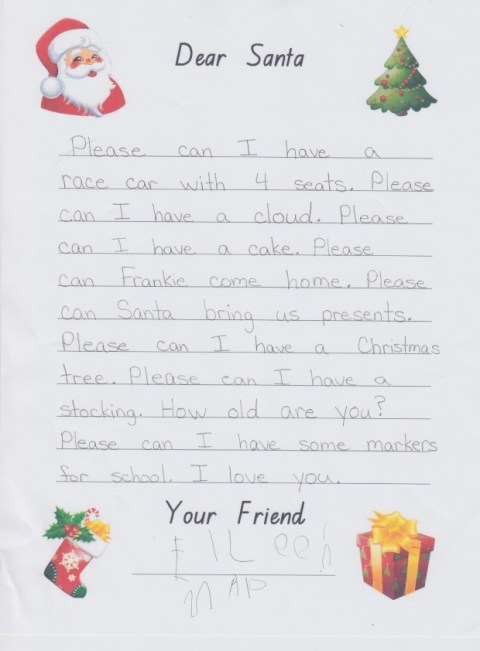 Dear Santa
Please can I have a
race car with 4 seats. Please
can I have a cloud. Please
can I have a cake. Please
can Frankie come home. Please
can Santa bring us presents.
Please can I have a Christmas
tree. Please can I have a
stocking. How old are you?
Please can I have some markers
for school. I love you.
Your Friend